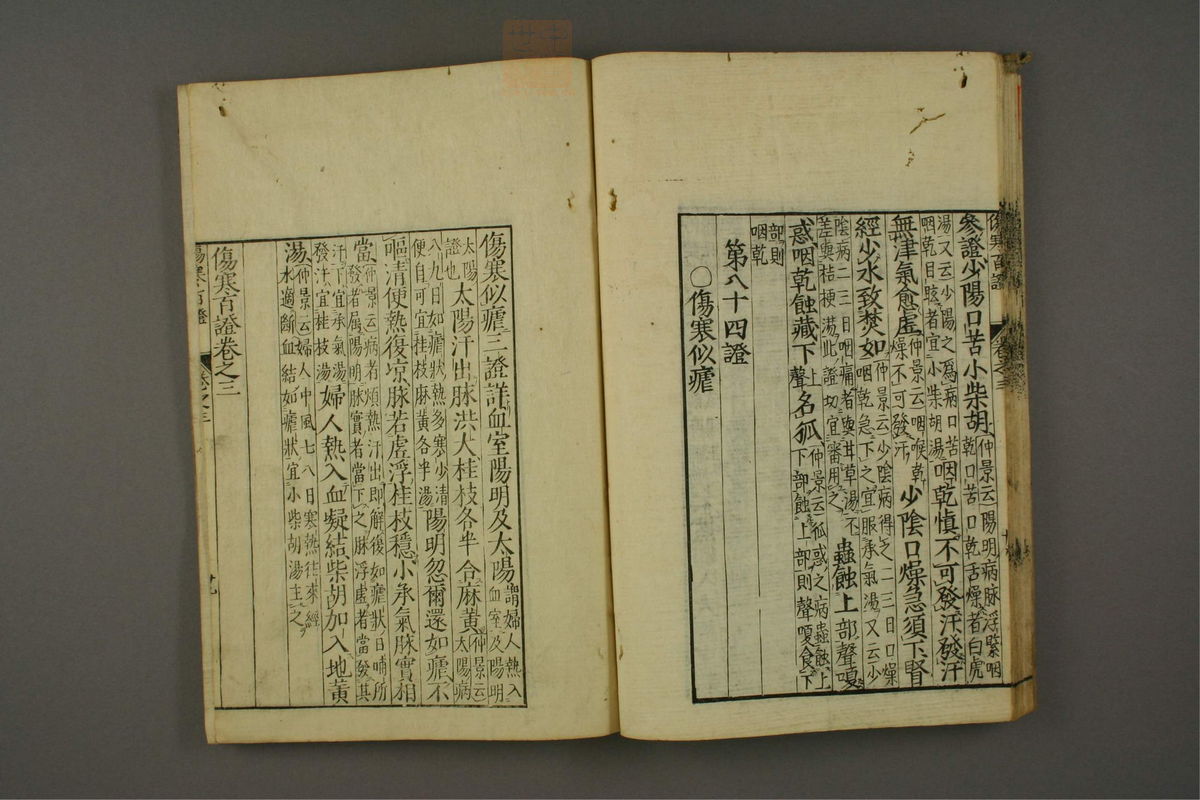 傷寒百證 卷之三
參證少陽口苦小柴胡仲景云陽明病脉浮緊咽乾口苦口乾舌燥者白虎
湯又云少陽之爲病口苦咽乾目眩者宜小柴胡湯咽乾愼不可發汗發汗
無津氣愈虛仲景云咽喉乾燥不可發汗少陰口燥急須下腎
經少水致焚如仲景云少陰病得之二三日口燥咽乾急下之宜服承氣湯又云少
陰病二三日咽痛者與甘草湯不差與桔梗湯此證切宜審用之蟲蝕上部聲嗄
惑咽乾蝕藏下聲名狐仲景云狐惑之病蟲蝕上下部蝕上部則聲嗄食下
部則咽乾
第八十四證
○傷寒似瘧
傷寒似瘧三證詳血室陽明及太陽謂婦人熱入血室及陽明
太陽證也太陽汗出脉洪大桂枝各半合麻黃仲景云太陽病
八九日如瘧狀熱多寒少清便自可宜桂枝麻黃各半湯陽明忽爾還如瘧不
嘔清便熱復凉脉若虛浮桂枝穩小承氣脉實相
當仲景云病者煩熱汗出即解復如瘧狀日晡所發者屬陽明脉實者當下之脉浮虛者當發其
汗下宜承氣湯發汗宜桂枝湯婦人熱入血凝結柴胡加入地黃
湯仲景云婦人中風七八日寒熱往來經水適斷血結如瘧狀宜小柴胡湯主之
傷寒百證卷之三
傷寒百證 卷之三